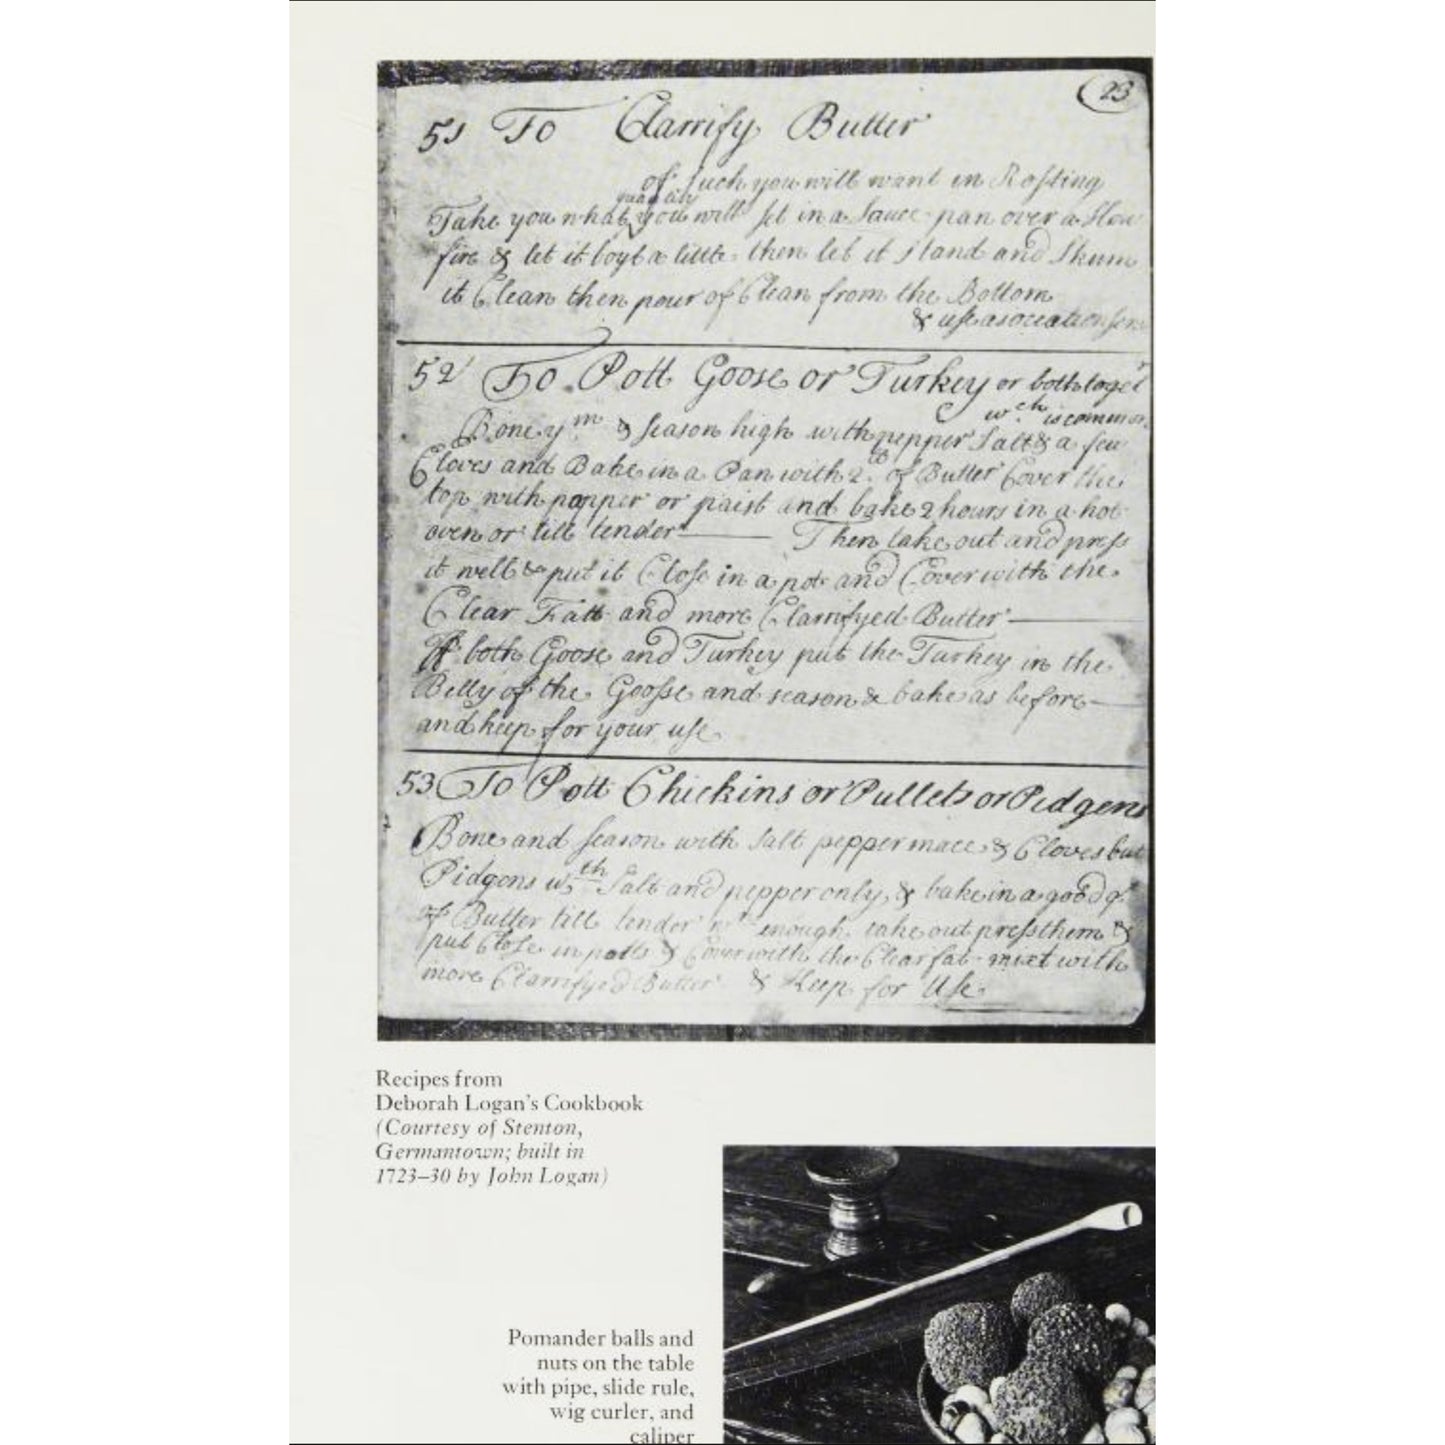 23
51 To Clarrify Butter
of such you will want in Rosting
quantity
Take you what you will set in a Sauce pan over a Slow
fire & let it boyl a little then let it stand and Skum
it Clean then pour of Clean from the Bottom
& use as
52 To Pott Goose or Turkey or both
wch is common
Bone ym & season high with pepper Salt & a few
Cloves and Bake in a Pan with 2 lb of Butter Cover the
top with papper or paist and bake 2 hours in a hot
oven or till tender Then take out and press
it well & put it Close in a pot and Cover with the
Clear Fatt and more Clarrifyed Butter
If both Goose and Turkey put the Turkey in the
Belly of the Goosse and season & bake as before
and keep for your use
53 To Pott Chickins or Pullets or Pidgens
Bone and season with Salt pepper mace & Cloves but
Pidgens wth Salt and pepper only, & bake in a good q
of Butter till tender enough take out press them &
put Close in potts & Cover with the Clear fat mixt with
more Clarrifyed Butter & Keep for Use
Recipes from
Deborah Logan's Cookbook
(Courtesy of Stenton,
Germantown; built in
1723–30 by John Logan)
Pomander balls and
nuts on the table
with pipe, slide rule,
wig curler, and
caliper